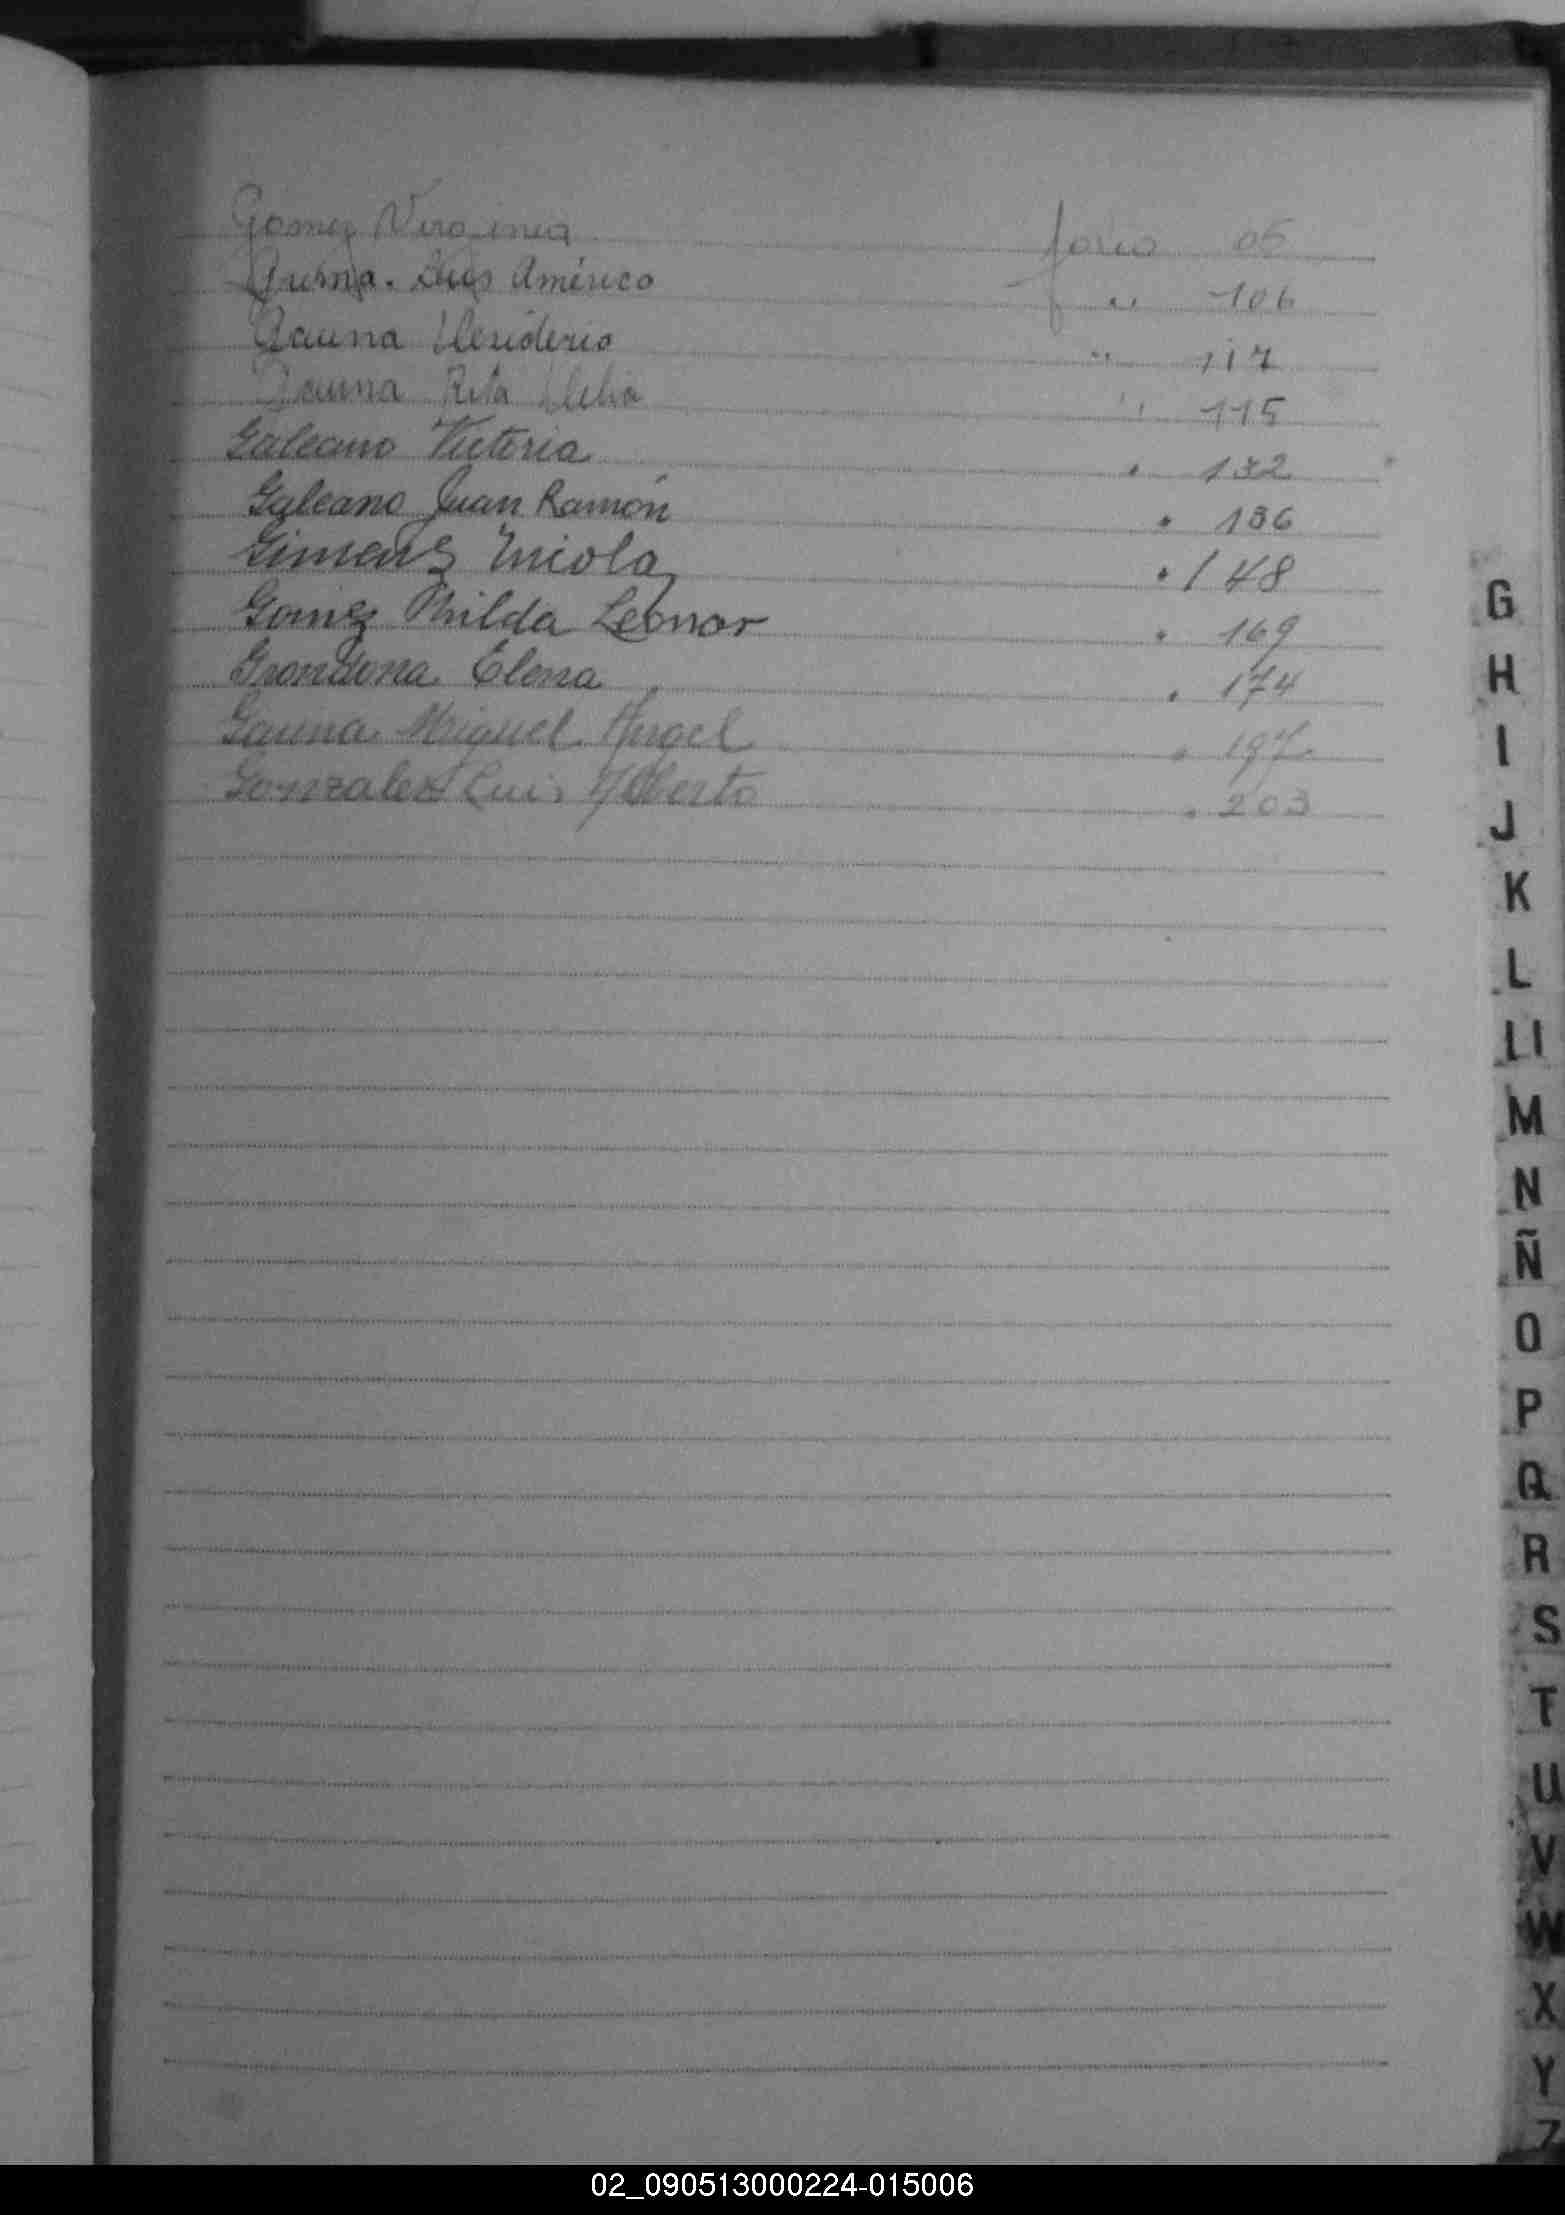 Gomez Virginia folio 05
Gurna. Luis Américo " 106
Gauna Desiderio " 117
Gauna Rita Delia " 115
Galeano Victoria " 132
Galeano Juan Ramón " 136
Gimenez Nicola " 148
Gomez Nilda Leonor " 169
Grondona Elena " 174
Gauna Miguel Angel " 197
Gonzalez Luis Alberto " 203
G
H
I
J
K
L
Ll
M
N
Ñ
O
P
Q
R
S
T
U
V
W
X
Y
Z
02_090513000224-015006